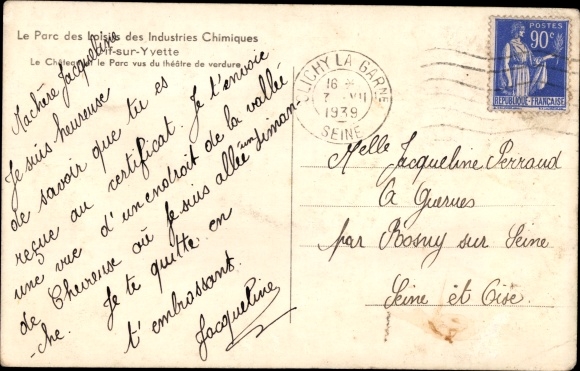 Le Parc des Loisirs des Industries Chimiques
Gif-sur-Yvette
Le Château et le Parc vus du théâtre de verdure
Ma chère Jacqueline
Je suis heureuse
de savoir que tu es
reçue au certificat. Je t'envoie
une vue d'un endroit de la vallée
de Chevreuse où je suis allée un diman
-che. Je te quitte en
t'embrassant.
Jacqueline
CLICHY LA GARENNE
16 *
7 - VII
1939
SEINE
POSTES
90c
REPUBLIQUE FRANÇAISE
Melle Jacqueline Perraud
A Guernes
par Rosny sur Seine
Seine et Oise.